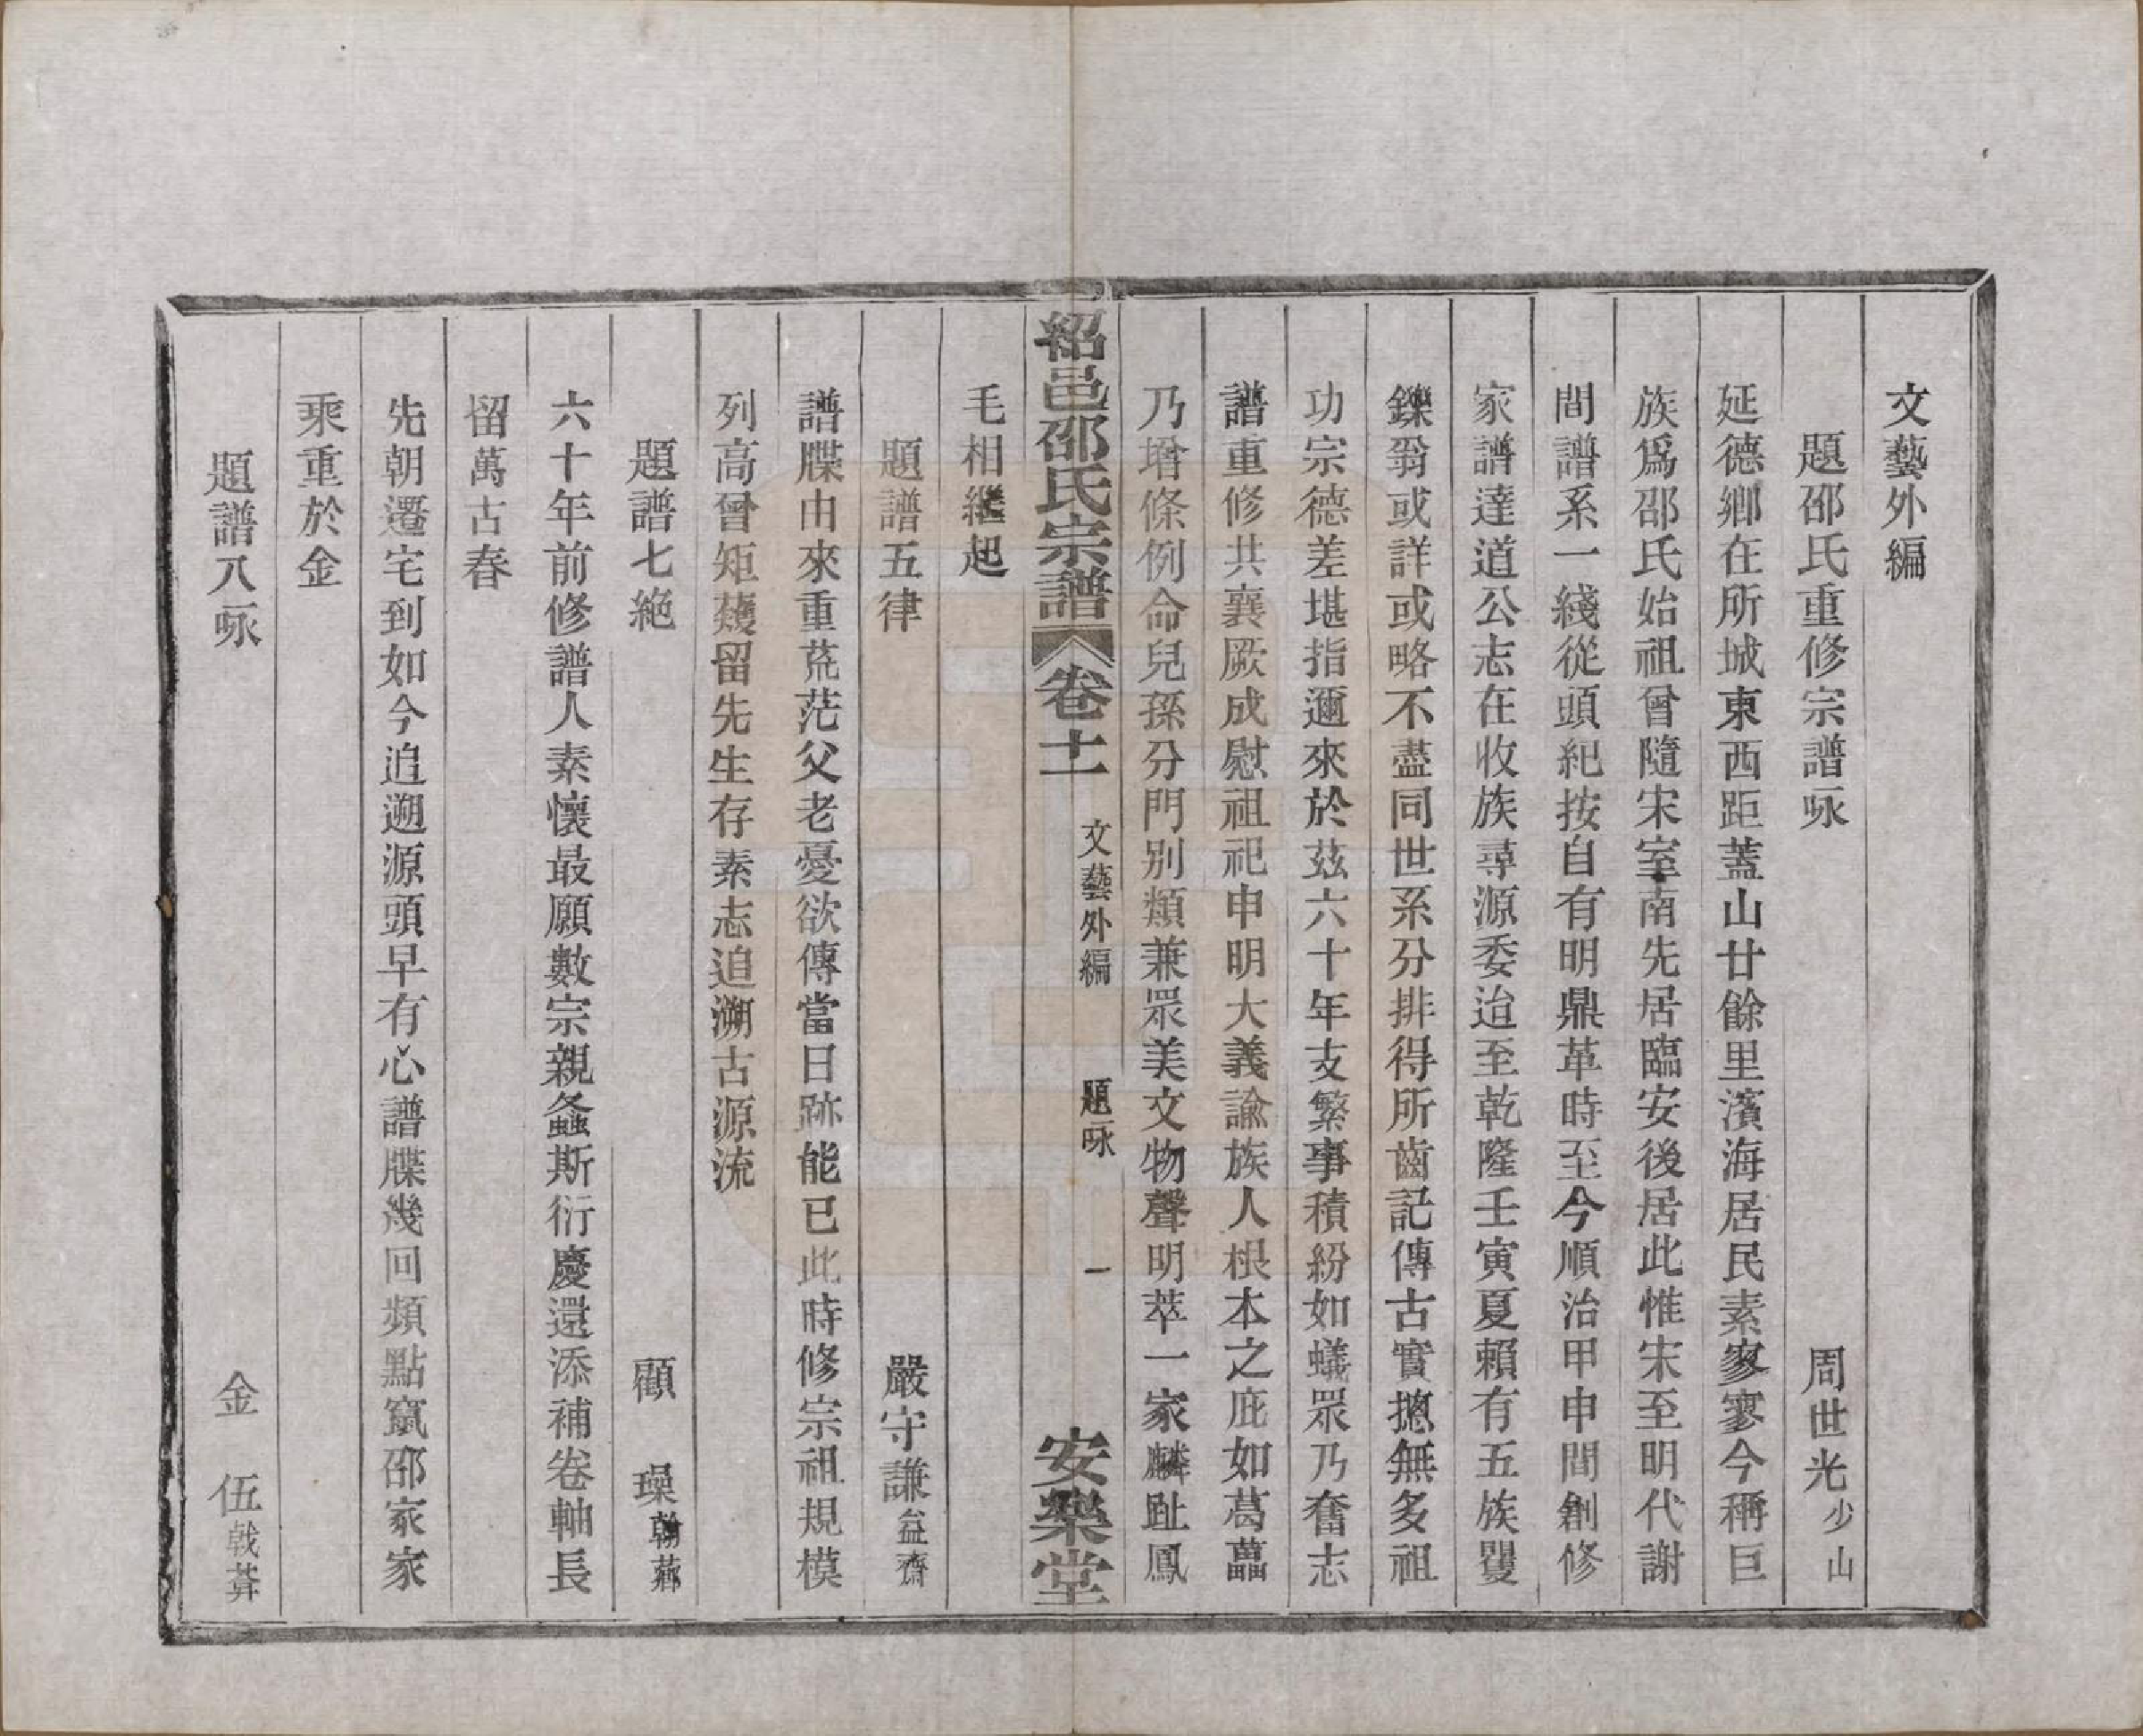 文藝外編
題邵氏重修宗譜咏 周世光少山
延德鄕在所城東西距蓋山廿餘里濱海居民素家寥今稱巨
族爲邵氏始祖曾隨宋室南先居臨安後居此惟宋至明代謝
間譜系一綫從頭紀按自有明鼎革時至今順治甲申間創修
家譜達道公志在收族尋源委迨至乾隆壬寅夏賴有五族矍
鑠翁或詳或略不盡同世系分排得所齒記傳古實摠無多祖
功宗德差堪指邇來於茲六十年支繁事積紛如蟻眾乃奮志
譜重修共襄厥成慰祖祀申明大義諭族人根本之庇如葛藟
乃增條例命兒孫分門別類兼眾美文物聲明萃一家麟趾鳳
紹邑邵氏宗譜 卷十一 文藝外編 題咏 一 安樂堂
毛相繼起
題譜五律 嚴守謙益齋
譜牒由來重茫茫父老憂欲傳當日跡能已此時修宗祖規模
列高曾矩薉留先生存素志追溯古源流
題譜七絶 顧 璪翰薌
六十年前修譜人素懷最願數宗親螽斯衍慶還添補卷軸長
留萬古春
先朝遷宅到如今追遡源頭早有心譜牒幾回頻點竄邵家家
乘重於金
題譜八咏 金 伍戟莽